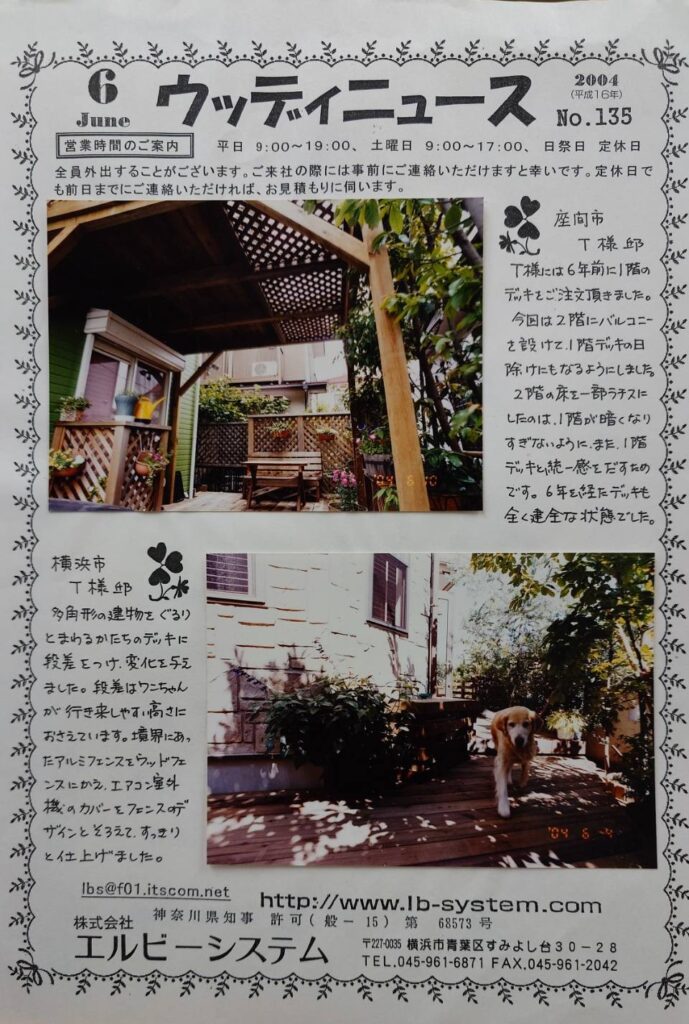 6
June
ウッディニュース
2004
(平成16年)
No.135
営業時間のご案内
平日 9:00～19:00、 土曜日 9:00～17:00、 日祭日 定休日
全員外出することがございます。ご来社の際には事前にご連絡いただけますと幸いです。定休日で
も前日までにご連絡いただければ、お見積もりに伺います。
座間市
T様邸
T様には6年前に1階の
デッキをご注文頂きました。
今回は2階にバルコニー
を設けて、1階デッキの日
除けにもなるようにしました。
2階の床を一部ラチスに
したのは、1階が暗くなり
すぎないように、また、1階
デッキと統一感をだすため
です。6年を経たデッキも
全く健全な状態でした。
'04 6 10
横浜市
T様邸
多角形の建物をぐるり
とまわるかたちのデッキに
段差をつけ、変化を与え
ました。段差はワンちゃん
が行き来しやすい高さに
おさえています。境界にあっ
たアルミフェンスをウッドフェ
ンスにかえ、エアコン室外
機のカバーをフェンスのデ
ザインとそろえて、すっきり
と仕上げました。
'04 6 4
lbs@f01.itscom.net
http://www.lb-system.com
神奈川県知事 許可(般－15) 第 68573号
株式会社
エルビーシステム
〒227-0035 横浜市青葉区すみよし台30－28
TEL.045-961-6871 FAX.045-961-2042